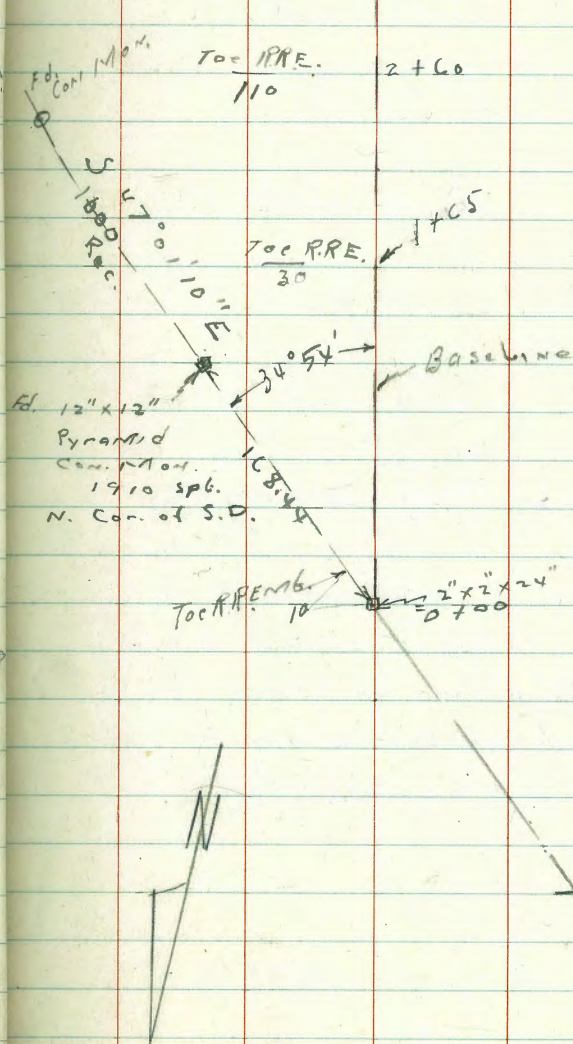 Fd. Con. Mon.
Toe R.R.E.
110
2 + 60
S 47° 01' 10" E
1600
Rec.
1 + 65
Toe R.R.E.
30
34° 54'
Baseline
Fd. 12" x 12"
Pyramid
Con. Mon.
1910 spk.
N. Cor. of S.D.
168.44
Toe R.R. Emb.
10
2" x 2" x 24"
= 0 + 00
N